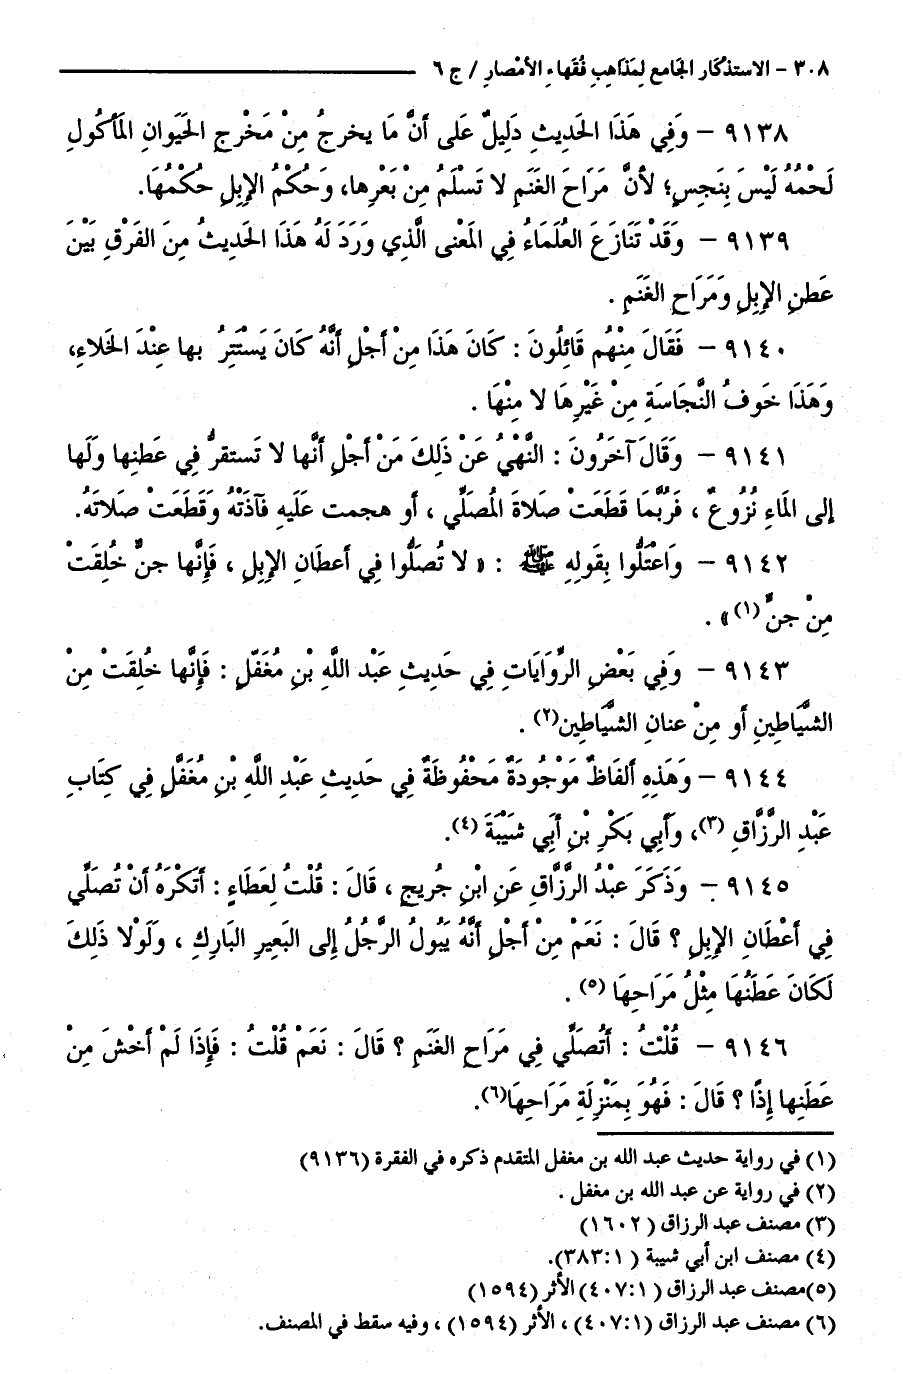 ٣٠٨ - الاستذكَار الجَامع لِمَذَاهِبِ فُقَهاءِ الأَمْصَارِ / ج ٦
٩١٣٨ - وَفِي هَذَا الحَدِيثِ دَلِيلٌ عَلى أَنَّ مَا يخرجُ مِنْ مَخْرجِ الحَيَوانِ المَأكُولِ
لَحْمُهُ لَيْسَ بِنَجِسٍ؛ لأنَّ مَرَاحَ الغَنَمِ لا تَسْلَمُ مِنْ بَعْرِها، وَحُكْمُ الإِبِلِ حُكْمُهَا.
٩١٣٩ - وَقَدْ تَنَازَعَ العُلَمَاءُ فِي المَعْنى الَّذِي وَرَدَ لَهُ هَذَا الحَدِيثُ مِنَ الفَرْقِ بَيْنَ
عَطنِ الإِبِلِ وَمَرَاحِ الغَنَمِ .
٩١٤٠ - فَقَالَ مِنْهُم قَائِلُونَ : كَانَ هَذَا مِنْ أَجْلِ أَنَّهُ كَانَ يَسْتَتِرُ بها عِنْدَ الخَلاءِ،
وَهَذَا خَوفُ النَّجَاسَةِ مِنْ غَيْرِهَا لا مِنْهَا .
٩١٤١ - وَقَالَ آخَرُونَ : النَّهْيُ عَنْ ذَلِكَ مَنْ أَجْلِ أَنَّها لا تَستقرُّ فِي عَطنِها وَلَها
إلى المَاءِ نُزُوعٌ ، فَرُبَّمَا قَطَعَتْ صَلاةَ المُصَلِّي ، أو هجمت عَلَيهِ فَآذَتْهُ وَقَطَعَتْ صَلاتَهُ.
٩١٤٢ - وَاعْتَلُّوا بِقَولِهِ ﷺ : « لا تُصَلُّوا فِي أعطَانِ الإِبِلِ ، فَإِنَّها جنٌّ خُلِقَتْ
مِنْ جنٍّ (١)» .
٩١٤٣ - وَفِي بَعْضِ الرِّوَايَاتِ فِي حَدِيثِ عَبْد اللَّهِ بْنِ مُغَفَّلٍ : فَإِنَّها خُلِقَتْ مِنْ
الشَّيَاطِينِ أو مِنْ عنانِ الشَّيَاطِين(٢) .
٩١٤٤ - وَهَذِهِ ألفَاظٌ مَوْجُودَةٌ مَحْفُوظَةٌ فِي حَدِيثِ عَبْدِ اللَّهِ بْنِ مُغَفَّلٍ فِي كِتَابِ
عَبْدِ الرَّزَّاقِ (٣)، وَأَبِي بَكْرِ بْنِ أَبِي شَيْبَةَ (٤).
٩١٤٥ - وَذَكَرَ عَبْدُ الرَّزَّاقِ عَنِ ابْنِ جُريجٍ ، قَالَ : قُلْتُ لِعَطَاءٍ : أَتَكْرَهُ أَنْ تُصَلِّي
فِي أَعْطَانِ الإِبِلِ ؟ قَالَ : نَعَم مِنْ أَجْلِ أَنَّهُ يَبُولُ الرَّجُلُ إِلى البَعِيرِ البَارِكِ ، وَلَوْلا ذَلِكَ
لَكَانَ عَطَنُهَا مِثْلُ مَرَاحِهَا (٥) .
٩١٤٦ - قُلْتُ : أَتُصَلِّي فِي مَرَاحِ الغَنَمِ ؟ قَالَ : نَعَمْ قُلْتُ : فَإِذَا لَمْ أَخْشَ مِنْ
عَطَنِها إِذًا ؟ قَالَ : فَهُوَ بِمَنْزِلَةِ مَرَاحِهَا(٦).
(١) في رواية حديث عبد الله بن مغفل المتقدم ذكره في الفقرة (٩١٣٦)
(٢) في رواية عن عبد الله بن مغفل .
(٣) مصنف عبد الرزاق (١٦٠٢)
(٤) مصنف ابن أبي شيبة (٣٨٣:١).
(٥)مصنف عبد الرزاق (٤٠٧:١) الأثر (١٥٩٤)
(٦) مصنف عبد الرزاق (٤٠٧:١) ، الأثر (١٥٩٤) ، وفيه سقط في المصنف.